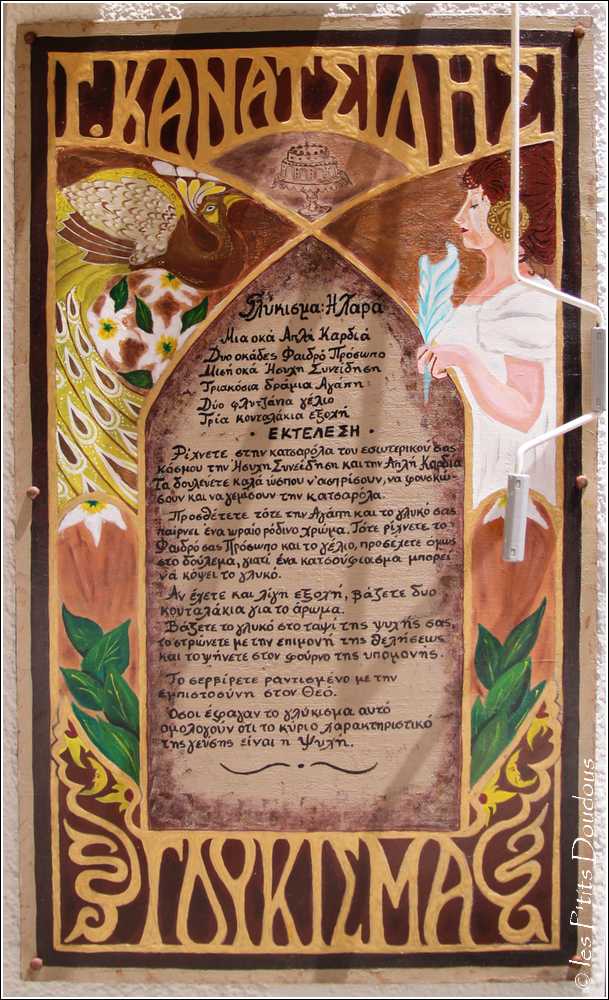 Γ. ΚΑΝΑΤΣΙΔΗΣ
Γλύκισμα: Η Χαρά
Μια οκά Απλή Καρδιά
Δυο οκάδες Φαιδρό Πρόσωπο
Μισή οκά Ήσυχη Συνείδηση
Τριακόσια δράμια Αγάπη
Δύο φλυτζάνια γέλιο
Τρία κουταλάκια εξοχή
· ΕΚΤΕΛΕΣΗ ·
Ρίχνετε στην κατσαρόλα του εσωτερικού σας
κόσμου την Ήσυχη Συνείδηση και την Απλή Καρδιά
Τα δουλεύετε καλά ώσπου ν' ασπρίσουν, να φουσκώ-
σουν και να γεμίσουν την κατσαρόλα.
Προσθέτετε τότε την Αγάπη και το γλυκό σας
παίρνει ένα ωραίο ρόδινο χρώμα. Τότε ρίχνετε το
Φαιδρό σας Πρόσωπο και το γέλιο, προσέχετε όμως
στο δούλεμα, γιατί ένα κατσούφιασμα μπορεί
να κόψει το γλυκό.
Αν έχετε και λίγη εξοχή, βάζετε δυο
κουταλάκια για το άρωμα.
Βάζετε το γλυκό στο ταψί της ψυχής σας,
το στρώνετε με την επιμονή της θελήσεως
και το ψήνετε στον φούρνο της υπομονής.
Το σερβίρετε ραντισμένο με την
εμπιστοσύνη στον Θεό.
Όσοι έφαγαν το γλύκισμα αυτό
ομολογούν ότι το κύριο χαρακτηριστικό
της γεύσης είναι η Ψυχή.
ΓΛΥΚΙΣΜΑ
© les P'tits Doudous